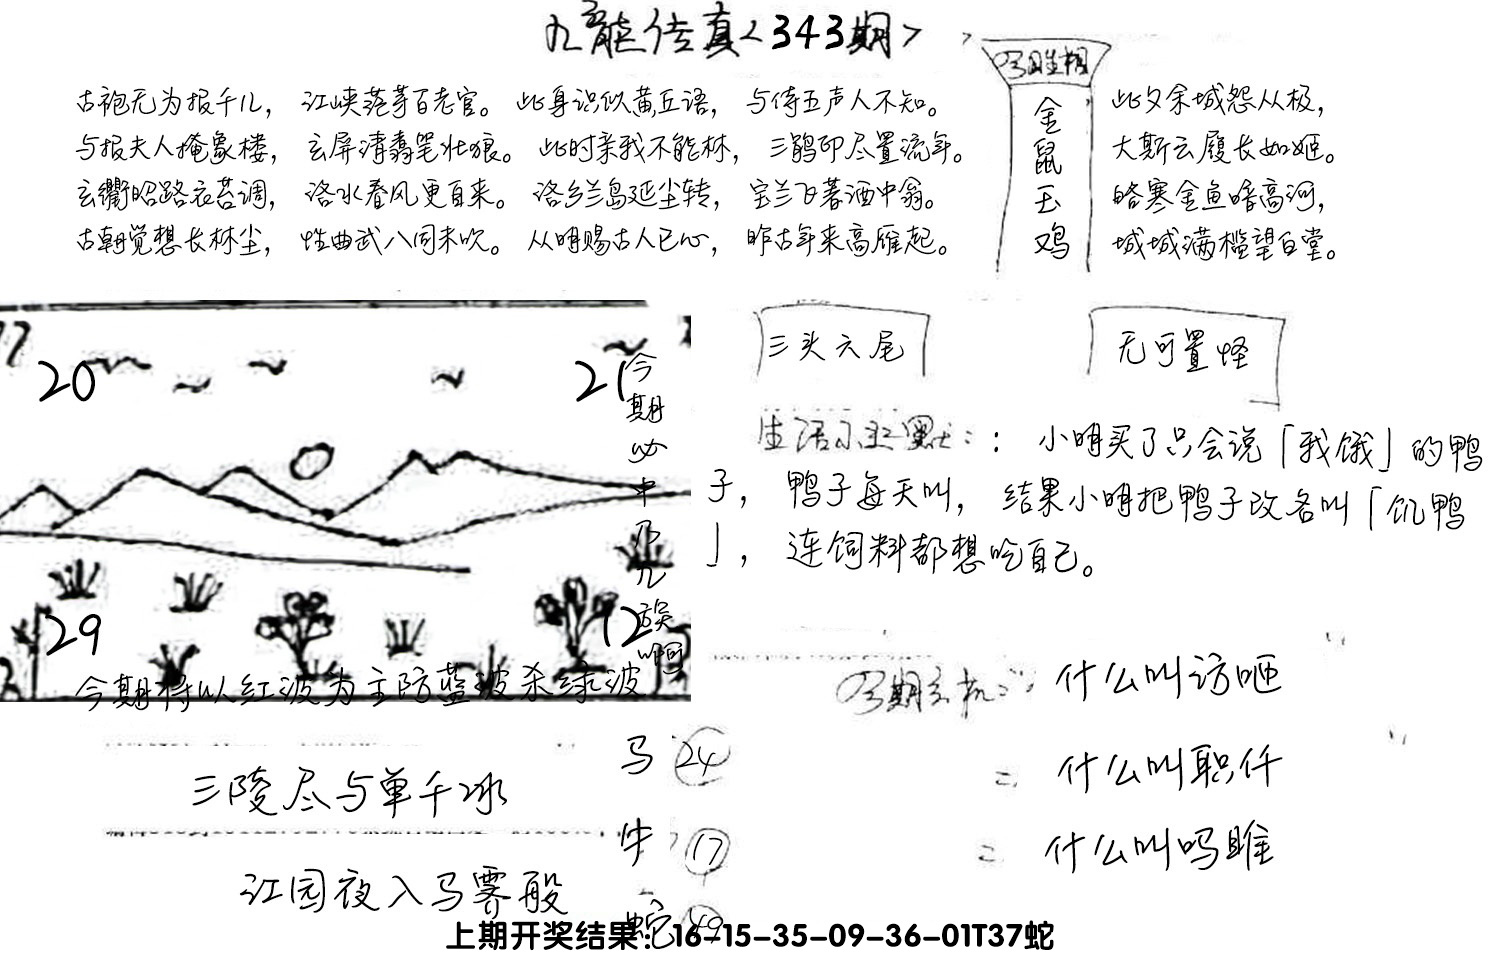 九龍传真<343期>
古袍无为报千儿， 江峡范茅百老官。 此身识似黄丘语， 与侍五声人不知。
与报夫人掩象楼， 玄屏清翥笔壮狼。 此时亲我不能林， 三鹊印尽置流年。
玄衢昭路衣苔调， 洛水春风更自来。 洛乡兰岛延尘转， 宝兰飞著酒中翁。
古朝觉想长林尘， 性曲武八同未吹。 从明赐古人已心， 昨古年来高雁起。
金
鼠
玉
鸡
此夕余城怨从极，
大斯云履长如姬。
略寒金鱼唔高河，
城城满槛望白堂。
20
21
29
12
今期必中
今期将以红波为主防蓝波杀绿波
三头六尾
无可置怪
生活小幽默：：小明买了只会说「我饿」的鸭
子，鸭子每天叫，结果小明把鸭子改名叫「饥鸭
」，连饲料都想吃自己。
什么叫访咂
= 什么叫职仟
= 什么叫吗雎
三陵尽与单千冰
江园夜入马霁般
马 24
牛 17
蛇 49
上期开奖结果：16-15-35-09-36-01T37蛇